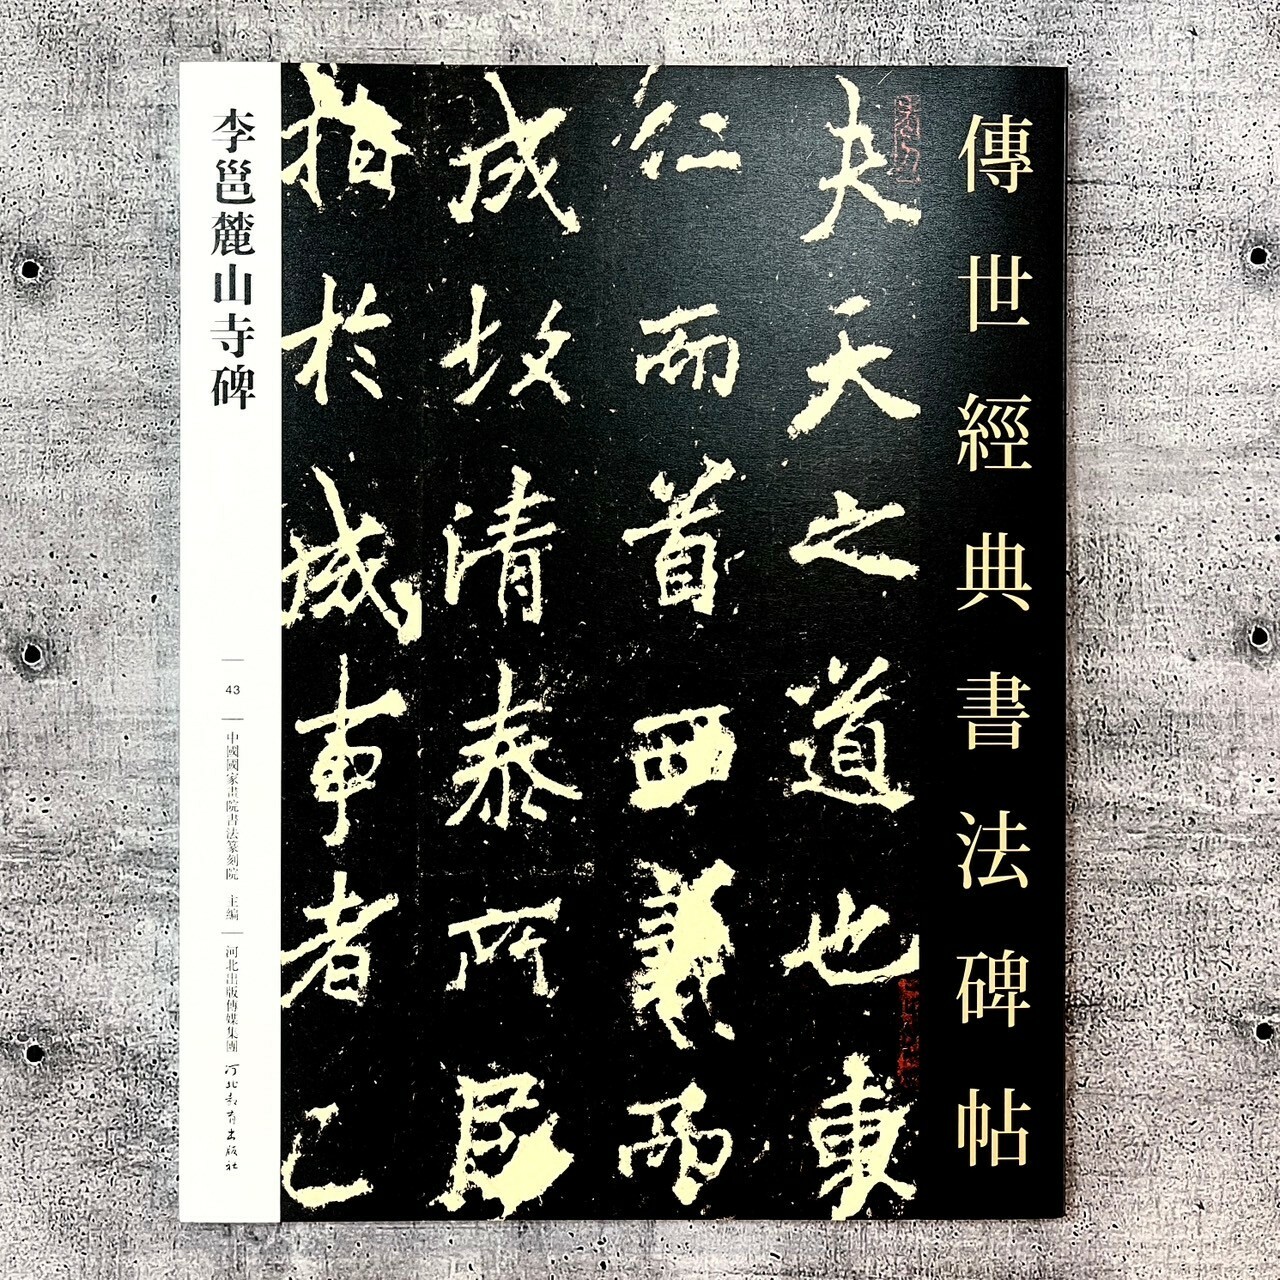 傳世經典書法碑帖
夫天之道也東
仁而首西義而
成故清泰所居
指於成事者已
李邕麓山寺碑
43
中國國家畫院書法篆刻院 主編
河北出版傳媒集團
河北教育出版社